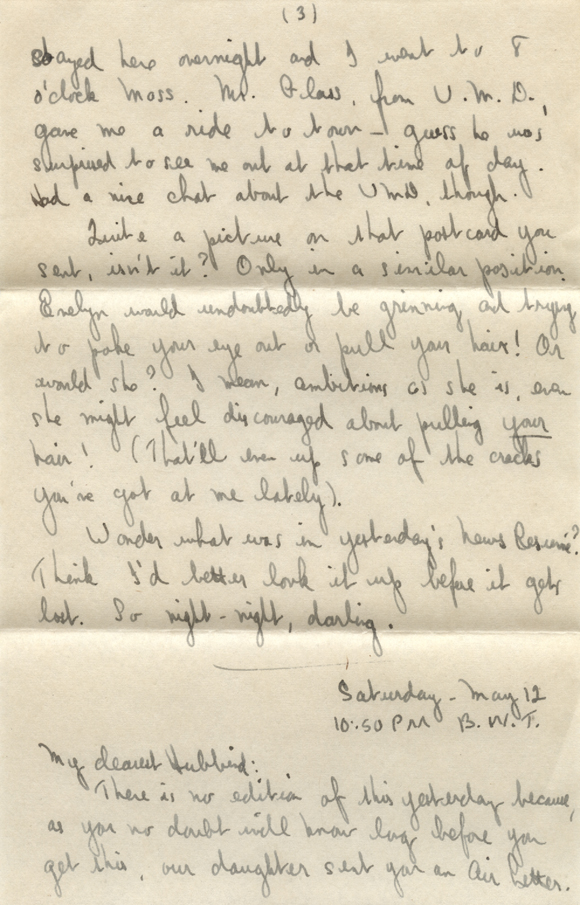 (3)
stayed here overnight and I went to 8
o'clock Mass. Mr. Glass, from U.M.D.,
gave me a ride to town - guess he was
surprised to see me out at that time of day.
Had a nice chat about the UMD, though.
Quite a picture on that postcard you
sent, isn't it? Only in a similar position
Evelyn would undoubtedly be grinning and trying
to poke your eye out or pull your hair! Or
would she? I mean, ambitious as she is, even
she might feel discouraged about pulling your
hair! (That'll even up some of the cracks
you've got at me lately).
Wonder what was in yesterday's News Resumé?
Think I'd better look it up before it gets
lost. So night-night, darling.
Saturday - May 12
10:50 PM B.W.T.
My dearest Hubbind:
There is no edition of this yesterday because,
as you no doubt will know long before you
get this, our daughter sent you an Air Letter.